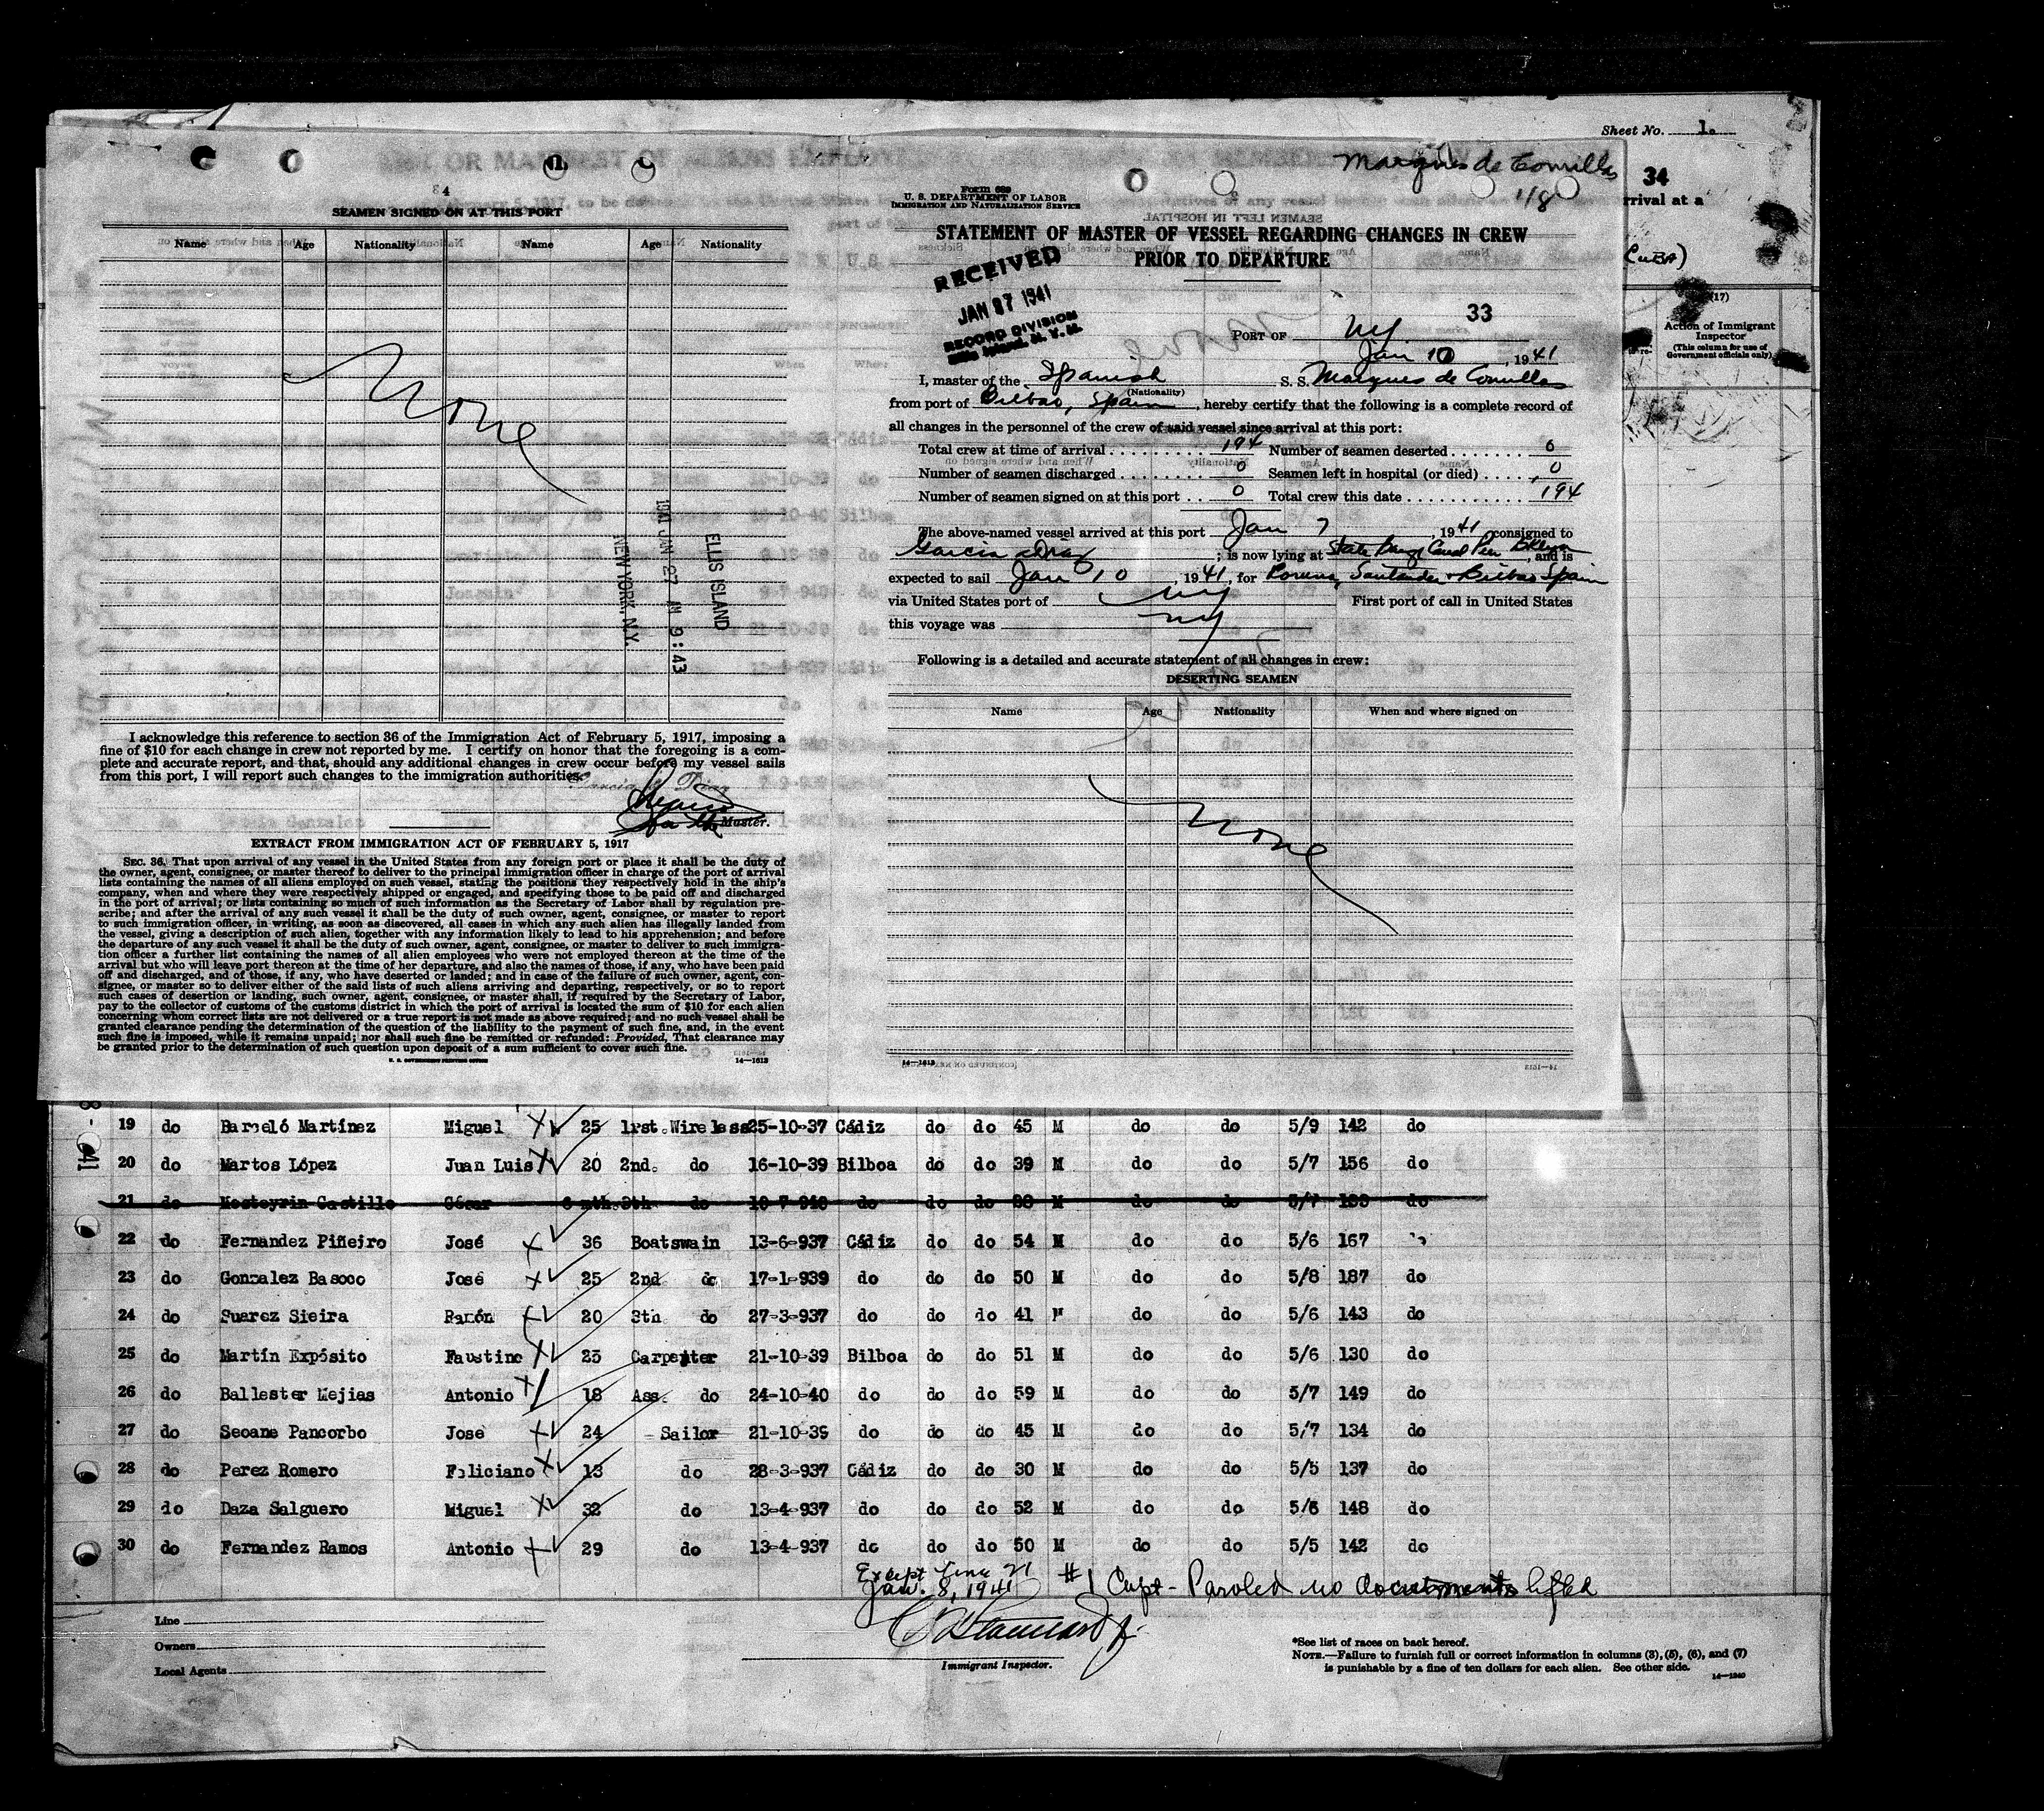 Sheet No. 1.
34
rrival at a
(CUBA)
(17)
Action of Immigrant
Inspector
(This column for use of
Government officials only)
4
SEAMEN SIGNED ON AT THIS PORT
Name Age Nationality Name Age Nationality
None
ELLIS ISLAND
1941 JAN 27 AM 9:43
NEW YORK, N.Y.
I acknowledge this reference to section 36 of the Immigration Act of February 5, 1917, imposing a
fine of $10 for each change in crew not reported by me. I certify on honor that the foregoing is a com-
plete and accurate report, and that, should any additional changes in crew occur before my vessel sails
from this port, I will report such changes to the immigration authorities.
Garcia & Diaz
Master.
EXTRACT FROM IMMIGRATION ACT OF FEBRUARY 5, 1917
SEC. 36. That upon arrival of any vessel in the United States from any foreign port or place it shall be the duty of
the owner, agent, consignee, or master thereof to deliver to the principal immigration officer in charge of the port of arrival
lists containing the names of all aliens employed on such vessel, stating the positions they respectively hold in the ship's
company, when and where they were respectively shipped or engaged, and specifying those to be paid off and discharged
in the port of arrival; or lists containing so much of such information as the Secretary of Labor shall by regulation pre-
scribe; and after the arrival of any such vessel it shall be the duty of such owner, agent, consignee, or master to report
to such immigration officer, in writing, as soon as discovered, all cases in which any such alien has illegally landed from
the vessel, giving a description of such alien, together with any information likely to lead to his apprehension; and before
the departure of any such vessel it shall be the duty of such owner, agent, consignee, or master to deliver to such immigra-
tion officer a further list containing the names of all alien employees who were not employed thereon at the time of the
arrival but who will leave port thereon at the time of her departure, and also the names of those, if any, who have been paid
off and discharged, and of those, if any, who have deserted or landed; and in case of the failure of such owner, agent, con-
signee, or master so to deliver either of the said lists of such aliens arriving and departing, respectively, or so to report
such cases of desertion or landing, such owner, agent, consignee, or master shall, if required by the Secretary of Labor,
pay to the collector of customs of the customs district in which the port of arrival is located the sum of $10 for each alien
concerning whom correct lists are not delivered or a true report is not made as above required; and no such vessel shall be
granted clearance pending the determination of the question of the liability to the payment of such fine, and, in the event
such fine is imposed, while it remains unpaid; nor shall such fine be remitted or refunded: Provided, That clearance may
be granted prior to the determination of such question upon deposit of a sum sufficient to cover such fine.
U. S. GOVERNMENT PRINTING OFFICE 14—1613
Marques de Comillas
1/8
Form 689
U. S. DEPARTMENT OF LABOR
IMMIGRATION AND NATURALIZATION SERVICE
STATEMENT OF MASTER OF VESSEL REGARDING CHANGES IN CREW
PRIOR TO DEPARTURE
RECEIVED
JAN 27 1941
RECORD DIVISION
Ellis Island, N. Y. H.
33
PORT OF NY
Jan 10, 1941
I, master of the Spanish S. S. Marques de Comillas
(Nationality)
from port of Bilbao, Spain, hereby certify that the following is a complete record of
all changes in the personnel of the crew of said vessel since arrival at this port:
Total crew at time of arrival 194 Number of seamen deserted 0
Number of seamen discharged 0 Seamen left in hospital (or died) 0
Number of seamen signed on at this port 0 Total crew this date 194
The above-named vessel arrived at this port Jan 7, 1941, consigned to
Garcia & Diaz; is now lying at State Barge Canal Pier Bklyn, and is
expected to sail Jan 10, 1941, for Coruna, Santander & Bilbao Spain
via United States port of NY First port of call in United States
this voyage was NY
Following is a detailed and accurate statement of all changes in crew:
DESERTING SEAMEN
Name Age Nationality When and where signed on
None
14—1613
19 do Barceló Martínez Miguel 25 1rst. Wireless 25-10-37 Cádiz do do 45 M do do 5/9 142 do
20 do Martos López Juan Luis 20 2nd. do 16-10-39 Bilboa do do 39 M do do 5/7 156 do
21 do Mosteyrin Castillo César 6 mth. 3th do 10-7-940 do do do M do do 5/7 do
22 do Fernandez Piñeiro José 36 Boatswain 13-6-937 Cádiz do do 54 M do do 5/6 167
23 do Gonzalez Basoco José 25 2nd do 17-1-939 do do do 50 M do do 5/8 187 do
24 do Suarez Sieira Ramón 20 3th do 27-3-937 do do do 41 M do do 5/6 143 do
25 do Martín Expósito Faustino 23 Carpenter 21-10-39 Bilboa do do 51 M do do 5/6 130 do
26 do Ballester Mejias Antonio 18 Ass. do 24-10-40 do do do 59 M do do 5/7 149 do
27 do Seoane Pancorbo Jose 24 Sailor 21-10-39 do do do 45 M do do 5/7 134 do
28 do Perez Romero Feliciano 13 do 28-3-937 Cádiz do do 30 M do do 5/5 137 do
29 do Daza Salguero Miguel 32 do 13-4-937 do do do 52 M do do 5/6 148 do
30 do Fernandez Ramos Antonio 29 do 13-4-937 do do do 50 M do do 5/5 142 do
Except line 21
Jan. 8, 1941 #1 Capt - Paroled no documents lifted
Line
Owners
Local Agents
Immigrant Inspector.
*See list of races on back hereof.
NOTE.—Failure to furnish full or correct information in columns (3), (5), (6), and (7)
is punishable by a fine of ten dollars for each alien. See other side.
14—1240